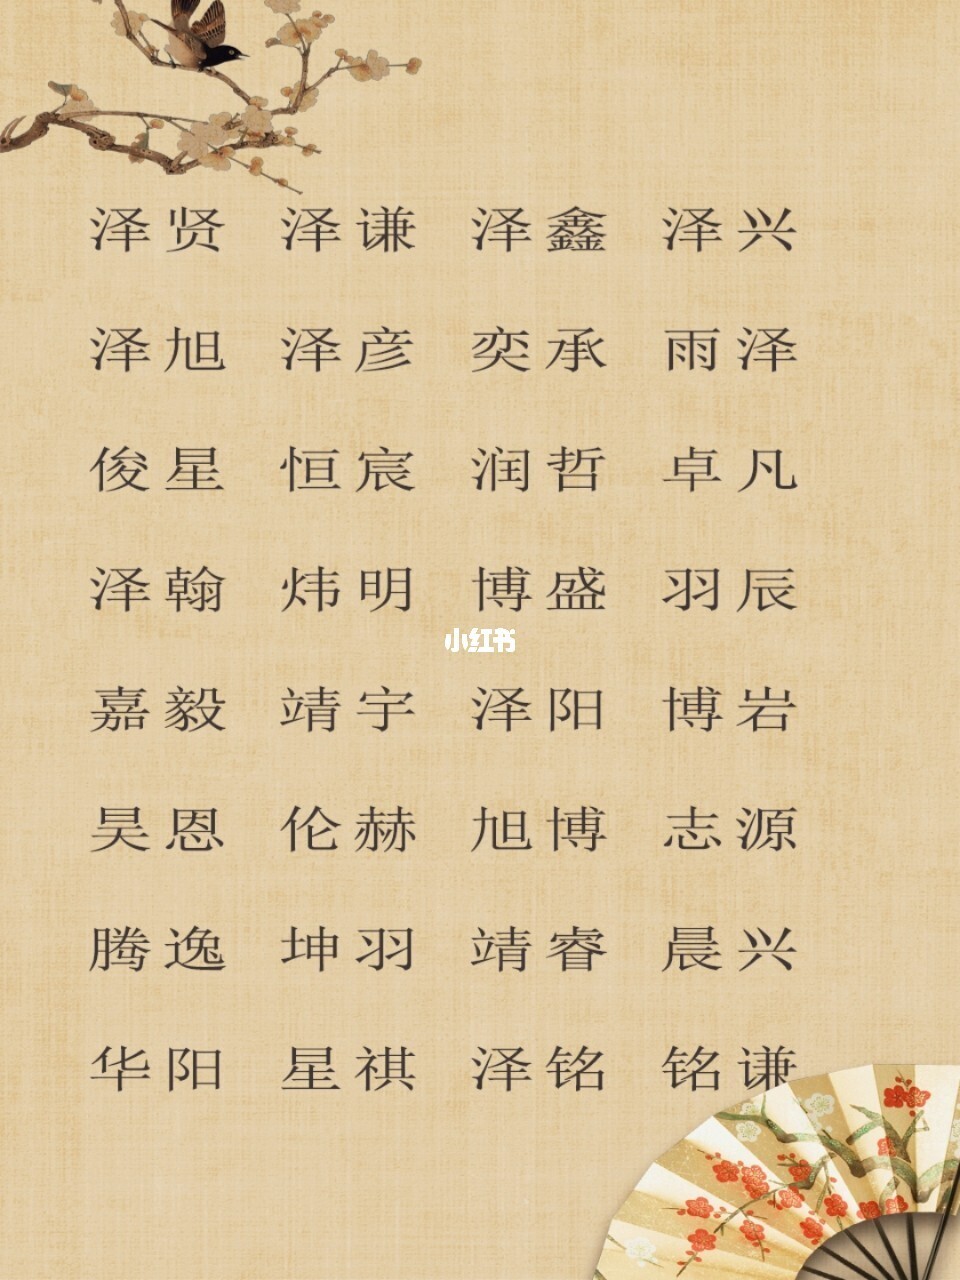 泽贤 泽谦 泽鑫 泽兴
泽旭 泽彦 奕承 雨泽
俊星 恒宸 润哲 卓凡
泽翰 炜明 博盛 羽辰
小红书
嘉毅 靖宇 泽阳 博岩
昊恩 伦赫 旭博 志源
腾逸 坤羽 靖睿 晨兴
华阳 星祺 泽铭 铭谦